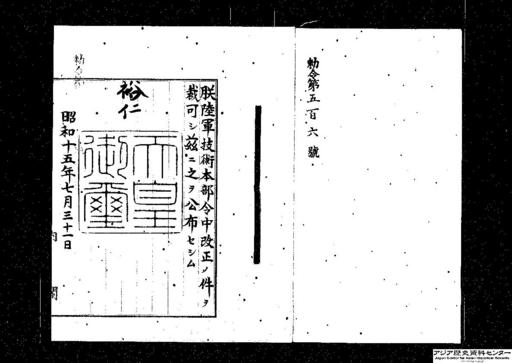 勅令第五百六號
朕陸軍技術本部令中改正ノ件ヲ
裁可シ茲ニ之ヲ公布セシム
裕仁
天皇
御璽
昭和十五年七月三十一日
内閣
アジア歴史資料センター
Japan Center for Asian Historical Records